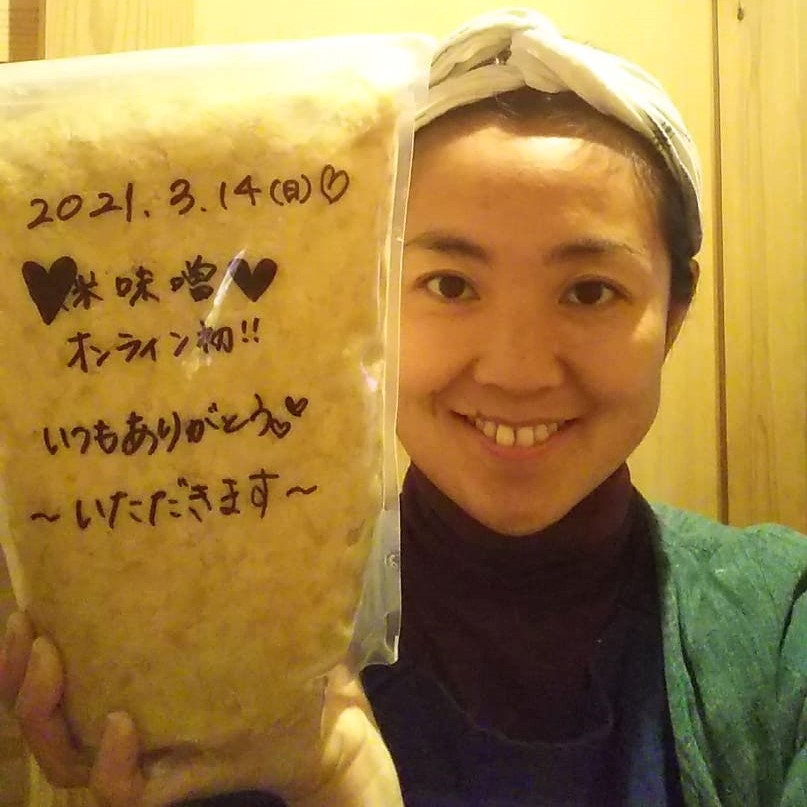 2021.3.14(日)♡
♥米味噌♥
オンライン初!!
いつもありがとう♡♡
~いただきます~